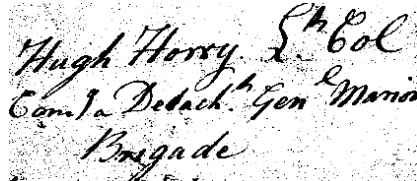 Hugh Horry Lt. Col
Comg a Detacht. Genl Marion
Brigade